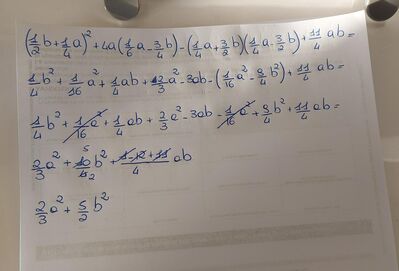 (1/2 b + 1/4 a)² + 4a(1/6 a - 3/4 b) - (1/4 a + 3/2 b)(1/4 a - 3/2 b) + 11/4 ab =
1/4 b² + 1/16 a² + 1/4 ab + 2/3 a² - 3ab - (1/16 a² - 9/4 b²) + 11/4 ab =
1/4 b² + 1/16 a² + 1/4 ab + 2/3 a² - 3ab - 1/16 a² + 9/4 b² + 11/4 ab =
2/3 a² + 10/4 b² 5 2 + 1-12+11/4 ab
2/3 a² + 5/2 b²